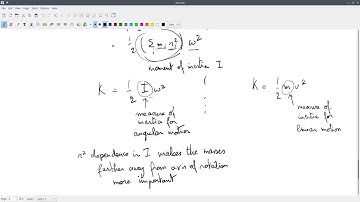 = 1/2 (Σ mᵢ rᵢ²) ω²
moment of inertia I
K = 1/2 I ω²
measure of
inertia for
angular motion
K = 1/2 m v²
measure of
inertia for
linear motion
r² dependence in I makes the masses
farther away from axis of rotation
more important